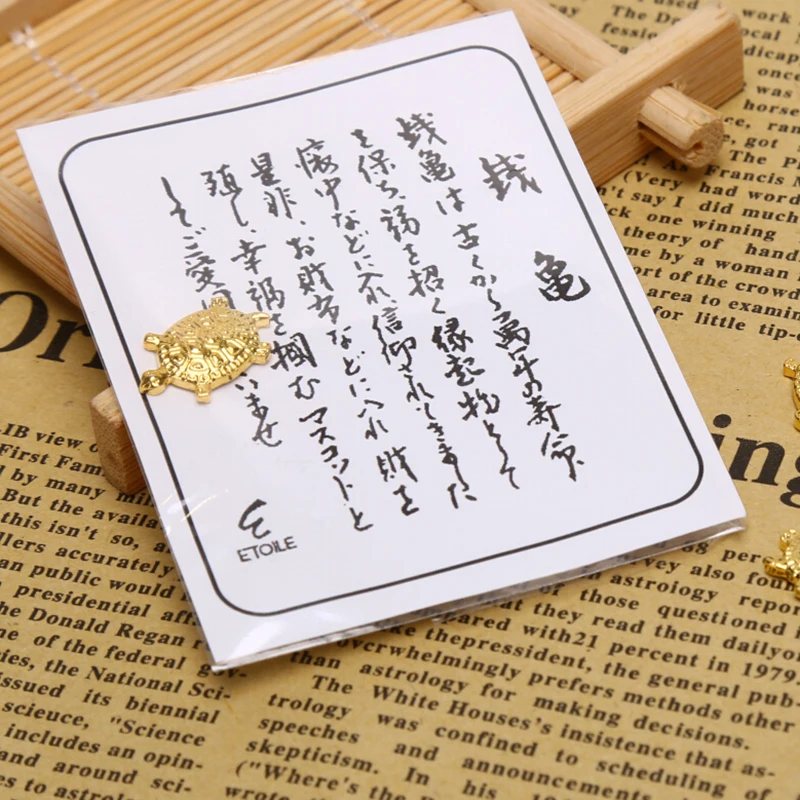 銭亀
銭亀は古くから萬年の寿命
を保ち、福を招く縁起物として
懐中などに入れ、信仰されてきました
是非、お財布などに入れ財を
殖し、幸福を掴むマスコットと
してご愛用
いませ
ETOILE
-IB view
First Fam
by many mil
But the availa
this isn't so, a
llers accurately
an public would
presidential aff
the Donald Regan
of the federal gov-
ies, the National Sci-
issued its biennial
science, "Science
includes an opin-
and around sci-
es to astrology
than astrology for making decisions.
The White Houses's insistence that as-
trology was confined to scheduling of
speeches and announcements
skepticism. In his
("Where's the
wrote
per-
survey also foun
astrology repor
of those questioned
they read them dailyor
pared with21 percent in 1979.
ke thepresident, the general pub-
overwhelmingly prefers methods other
used
work
The D
local
fessi
dicap
once
was
horse
ran
got
The P
As Francis
(Very had word
n't say I did much
ck one winning
theory of hand
me by a woman
ort of the crowd
area to examin
for little tip-
Ori
ing